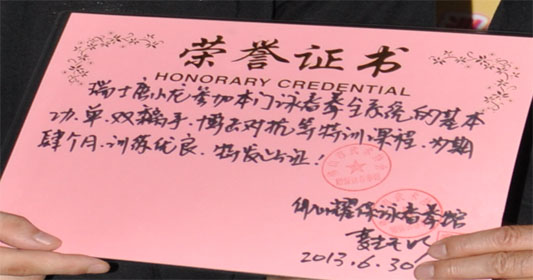 荣誉证书
HONORARY CREDENTIAL
瑞士唐小龙参加本门咏春拳全系统的基本
功.单.双黐手.搏击对抗等特训课程.为期
肆个月.训练优良.特发此证!
佛山耀保咏春拳馆
2013.6.30